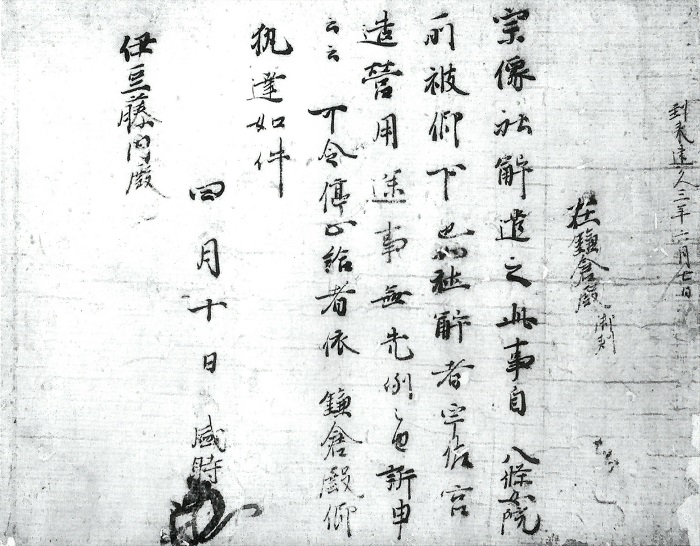 到来建久三年六月七日
在鎌倉殿御判
宗像社解遣之此事自 八條女院
所被仰下也如社解者宇佐宮
造營用途事無先例之由新申
云云 可令停止給者依 鎌倉殿仰
執達如件
四月十日 盛時
伊豆藤内殿